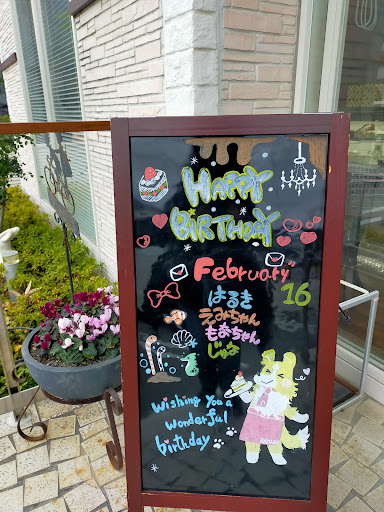 HAPPY
BIRTHDAY
February
16
はるき
えみちゃん
もおちゃん
じゅな
Wishing You a
wonderful
birthday